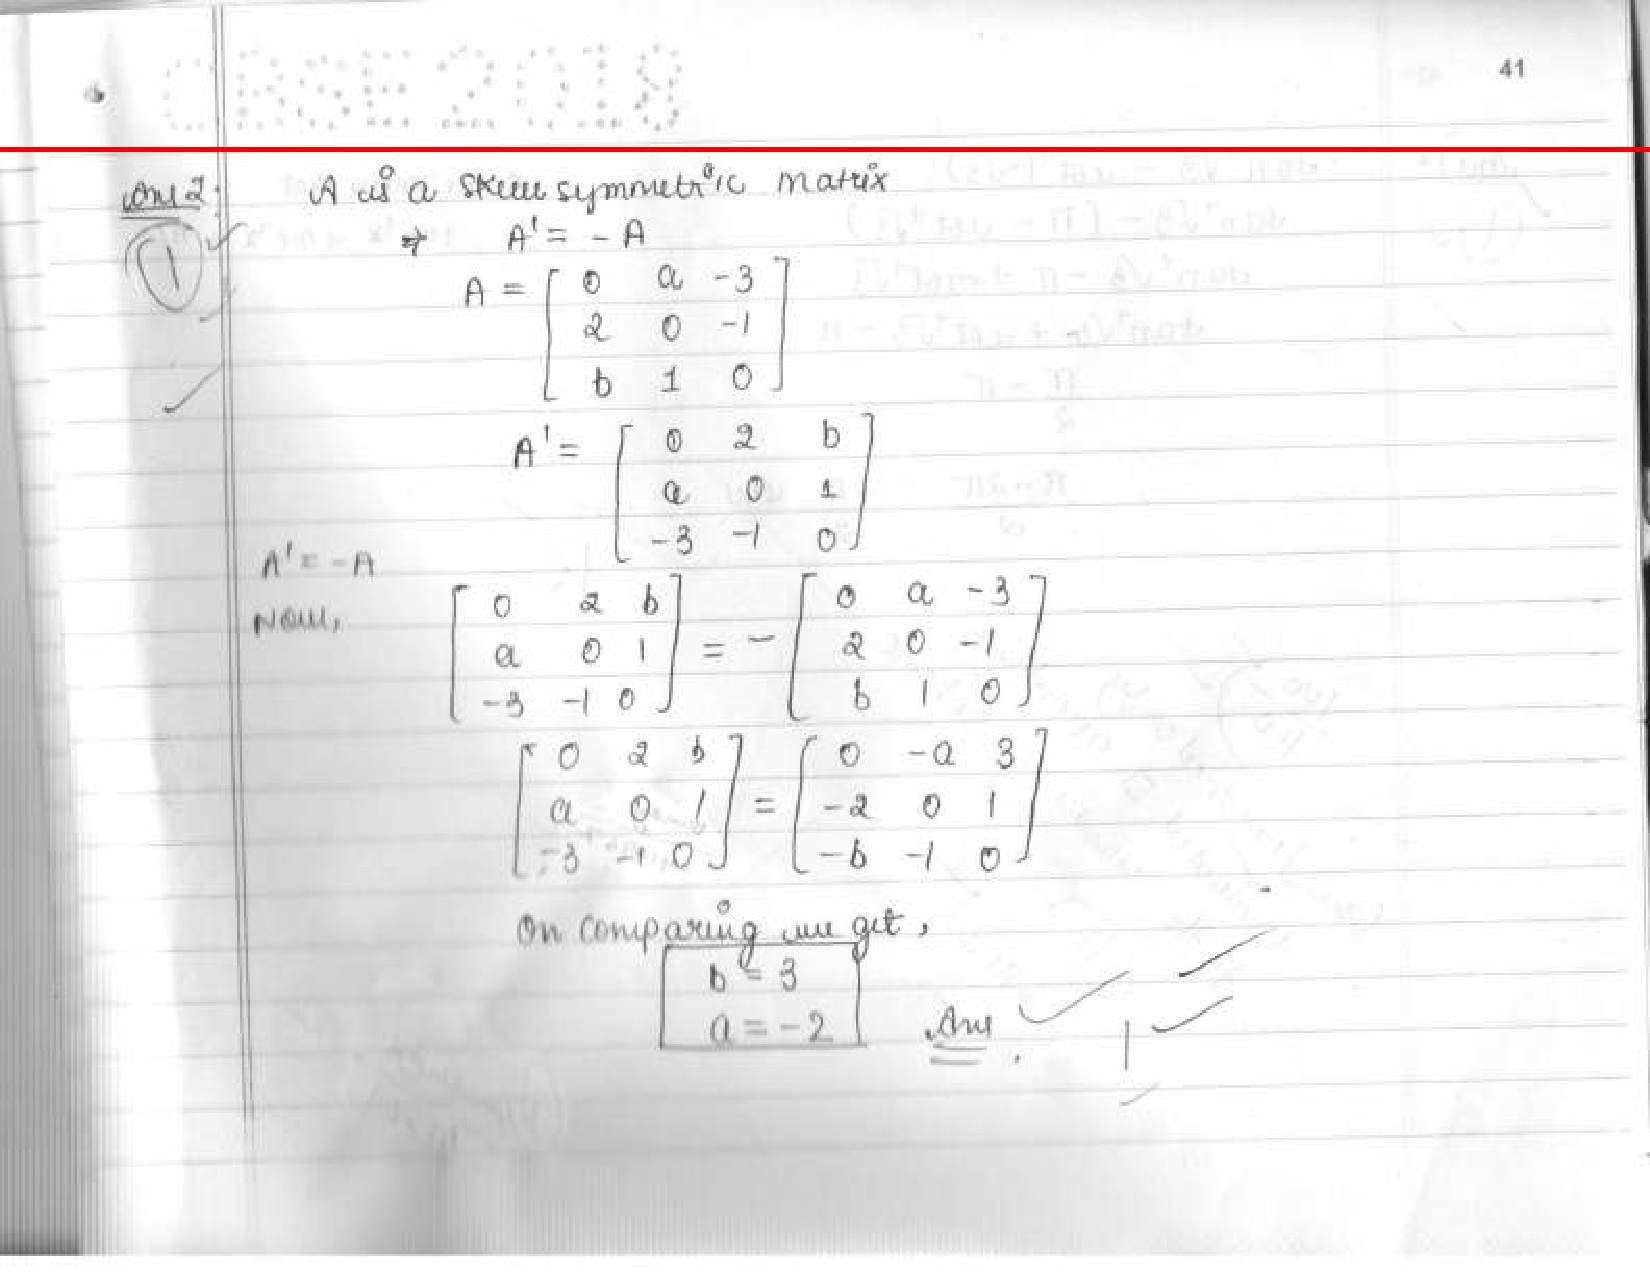 CBSE 2018
41
Ans 2: A is a skew symmetric matrix
1
⇒ A' = - A
A = [ 0 a -3
2 0 -1
b 1 0 ]
A' = [ 0 2 b
a 0 1
-3 -1 0 ]
A' = - A
Now,
[ 0 2 b ] = - [ 0 a -3 ]
[ a 0 1 ] [ 2 0 -1 ]
[ -3 -1 0 ] [ b 1 0 ]
[ 0 2 b ] = [ 0 -a 3 ]
[ a 0 1 ] [ -2 0 1 ]
[ -3 -1 0 ] [ -b -1 0 ]
On comparing we get,
b = 3
a = -2 Ans. 1